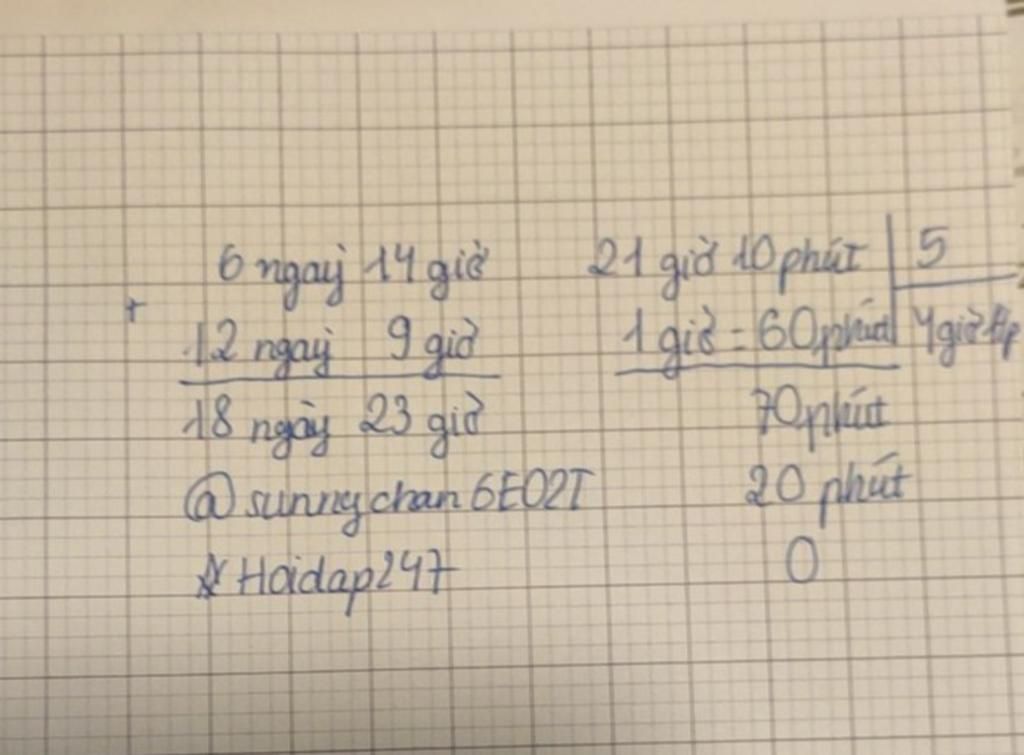 6 ngày 14 giờ
+
12 ngày 9 giờ
18 ngày 23 giờ
@sunnychan6E02T
☆ Hoidap247
21 giờ 10 phút 5
1 giờ = 60 phút 4 giờ
70 phút
20 phút
0